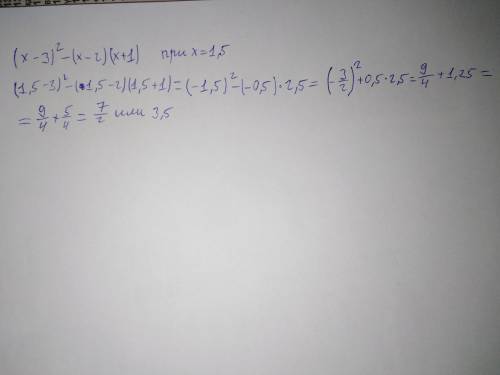 (x-3)²-(x-2)(x+1) при x=1,5
(1,5-3)²-(1,5-2)(1,5+1)=(-1,5)²-(-0,5)·2,5=(-3/2)²+0,5·2,5=9/4+1,25=
=9/4+5/4=7/2 или 3,5